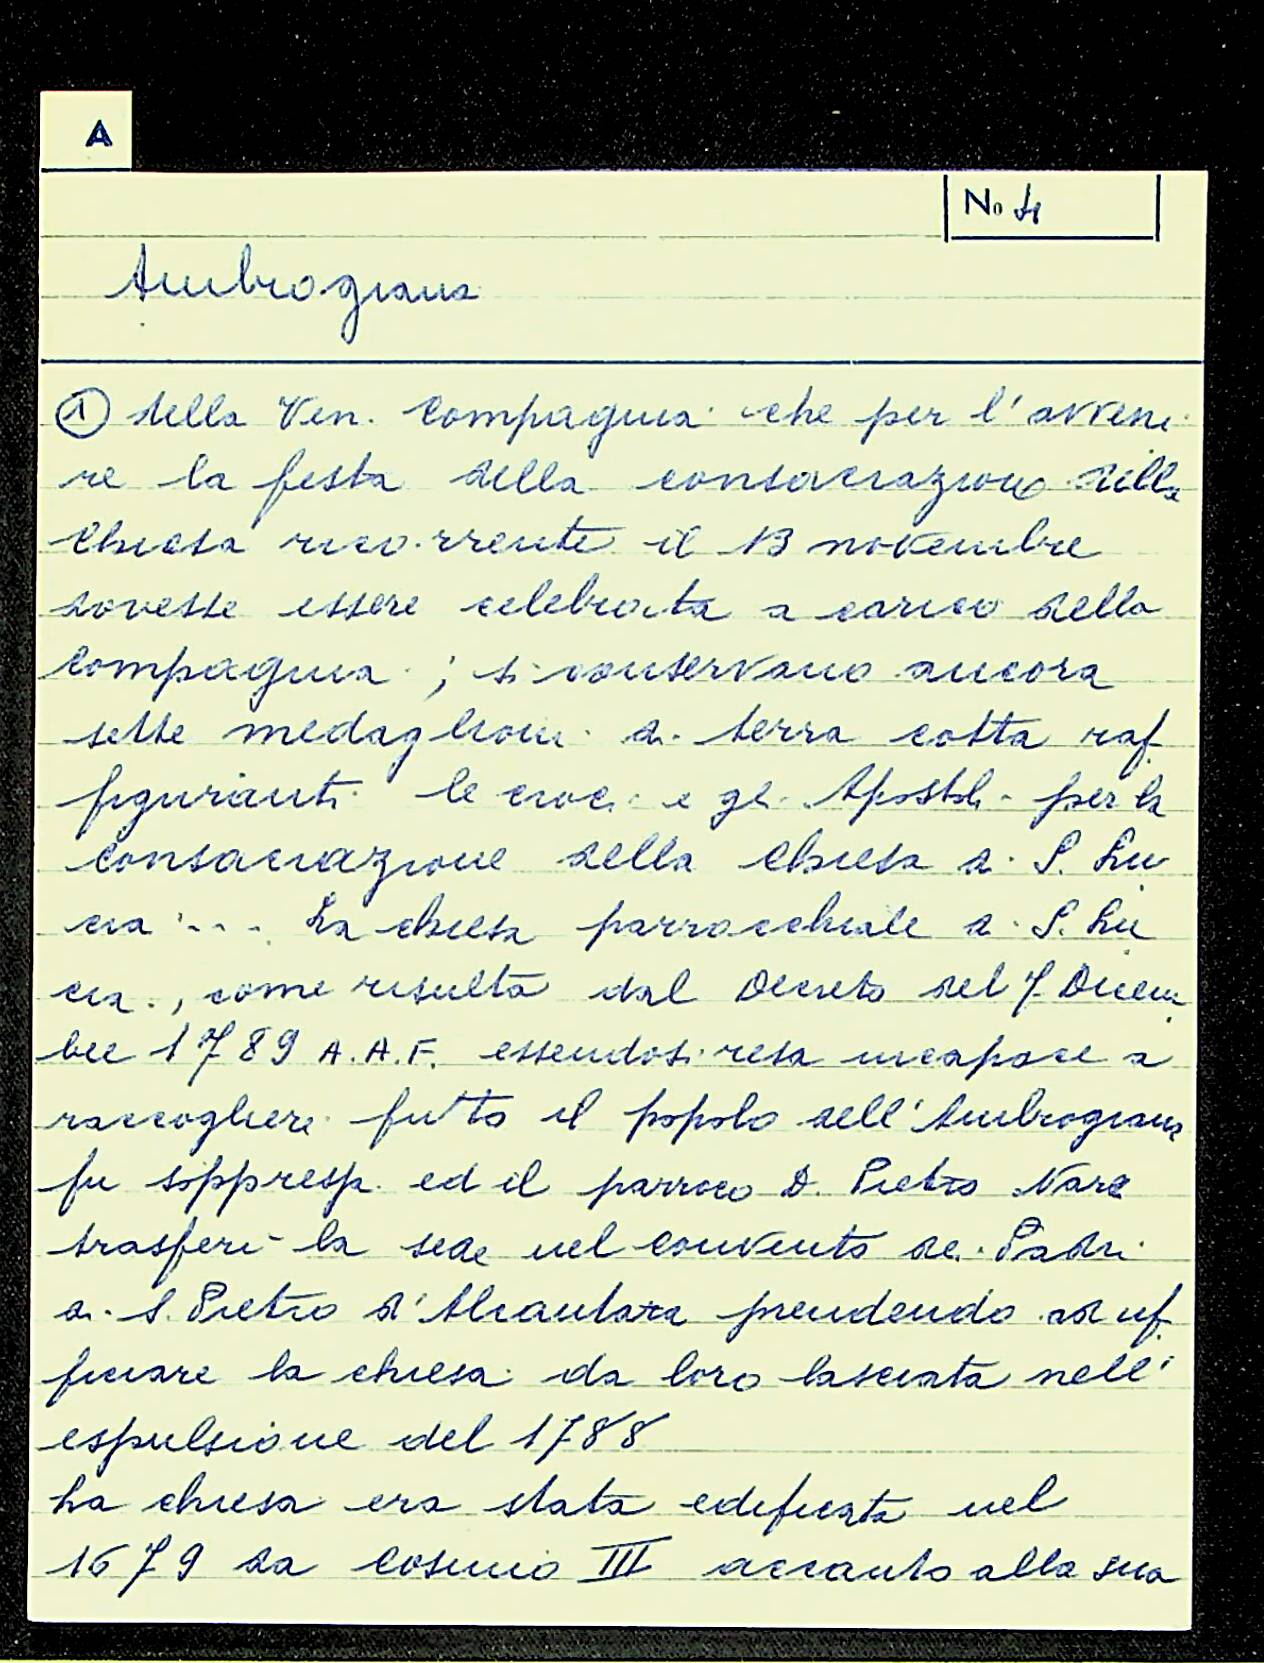 A
No 4
Ambrogiana
① della Ven. Compagnia che per l'avveni
re la festa della consacrazione della
Chiesa ricorrente il 13 novembre
dovesse essere celebrata a carico della
Compagnia ; si conservano ancora
sette medaglioni di terra cotta raf
figuranti le croci e gli Apostoli per la
consacrazione della Chiesa di S. Lu
cia .... La chiesa parrocchiale di S. Lu
cia, come risulta dal Decreto del 7 Dicem
bre 1789 A.A.F. essendosi resa incapace a
raccogliere tutto il popolo dell'Ambrogiana
fu soppressa ed il parroco D. Pietro Nardi
trasferì la sede nel convento dei Padri
di S. Pietro d'Alcantara prendendo ad uf
ficiare la chiesa da loro lasciata nell'
espulsione del 1788
La chiesa era stata edificata nel
1679 da Cosimo III accanto alla sua